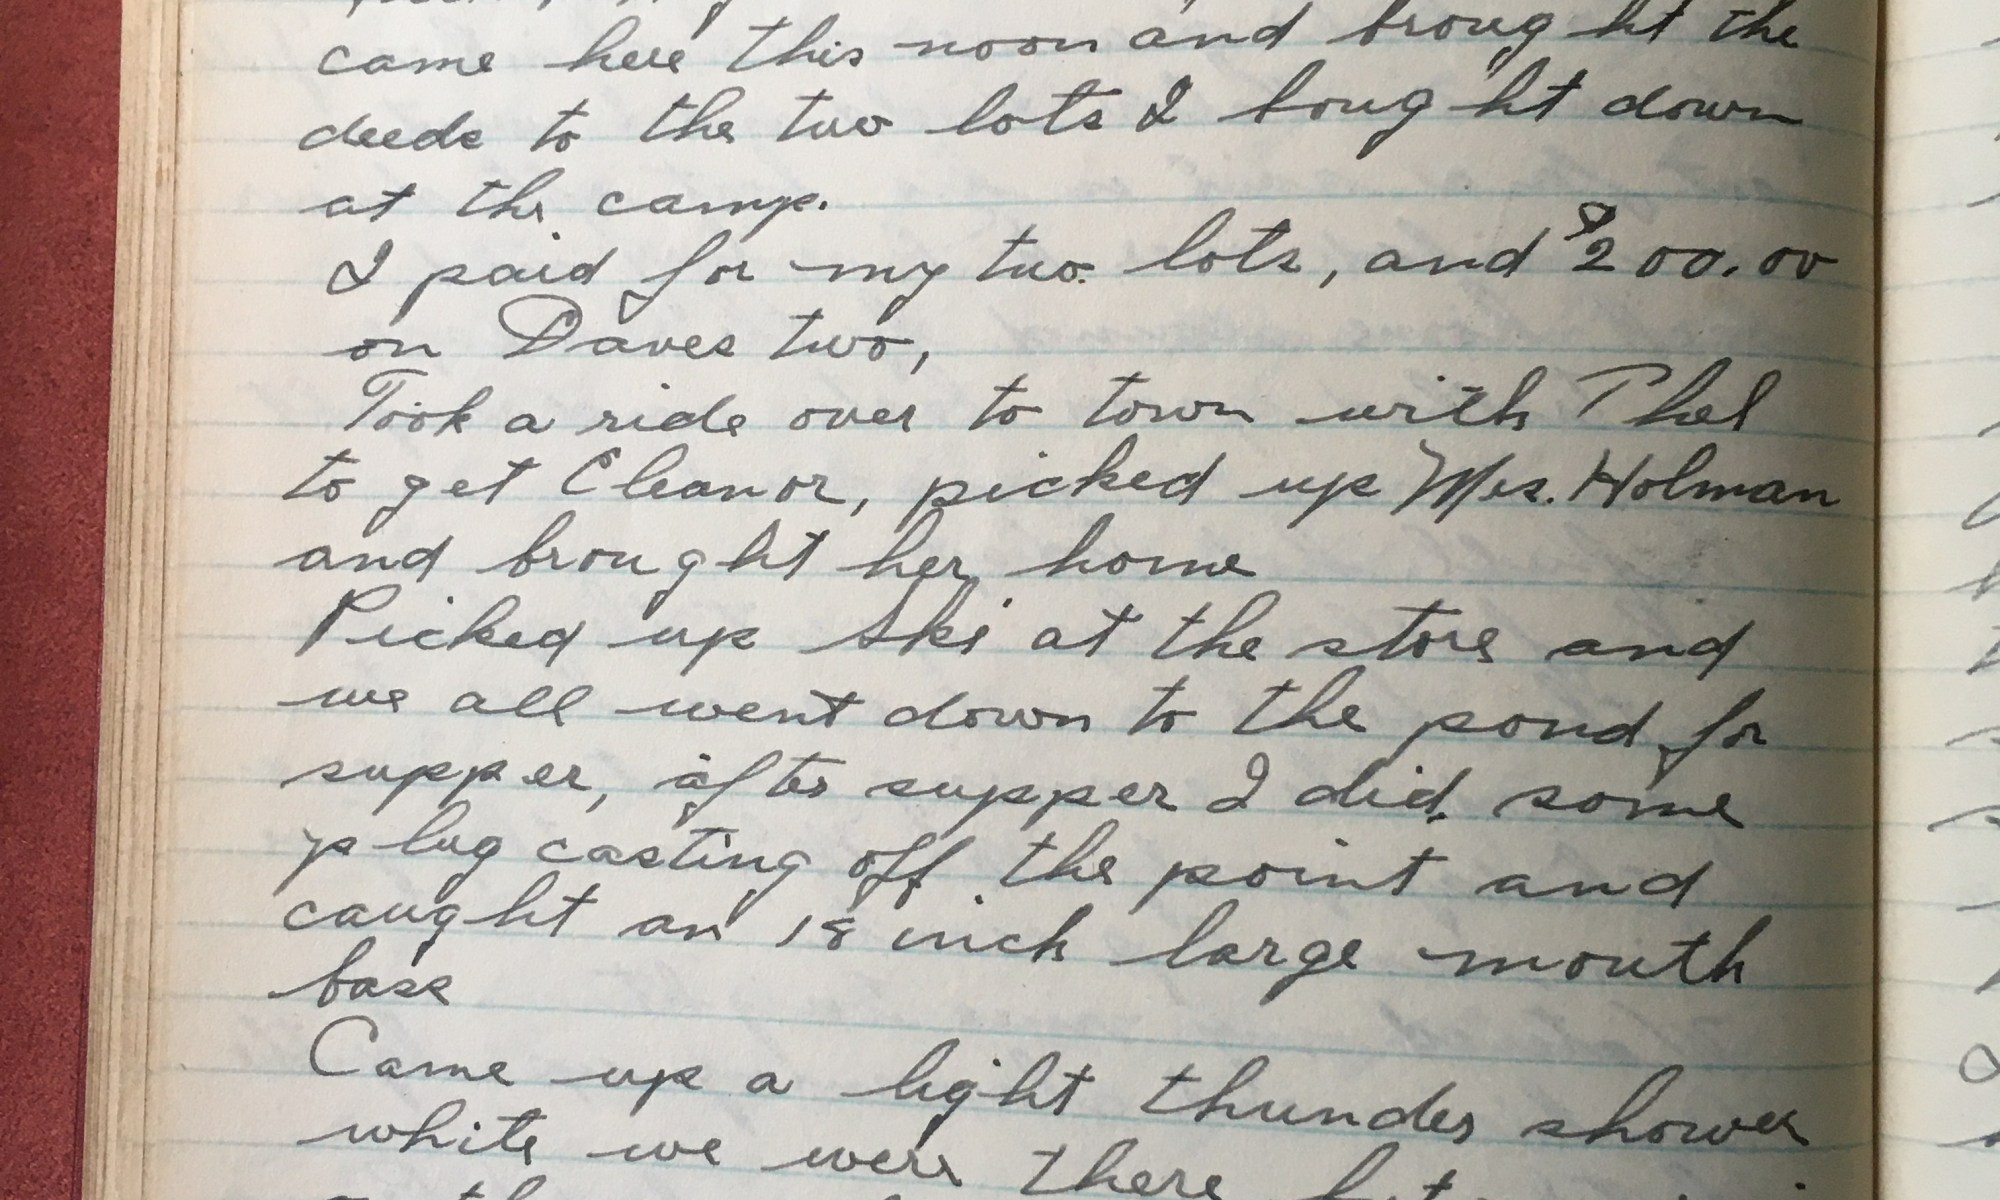 came here this noon and brought the
deeds to the two lots I bought down
at the camp.
I paid for my two lots, and $200.00
on Daves two,
Took a ride over to town with Phel
to get Eleanor, picked up Mrs. Holman
and brought her home
Picked up Ski at the store and
we all went down to the pond for
supper, after supper I did some
plug casting off the point and
caught an 18 inch large mouth
bass
Came up a light thunder shower
while we were there